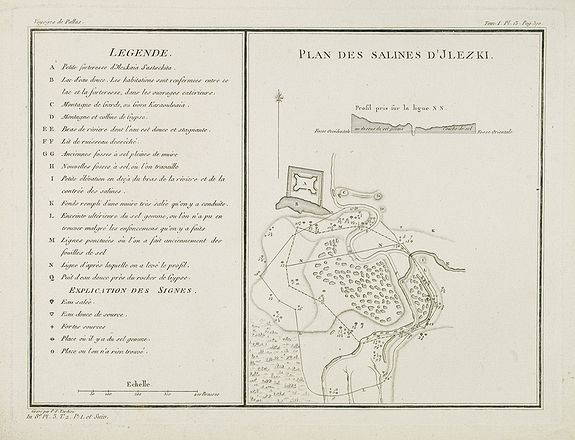 Voyages de Pallas.
Tom. I. Pl. 15. Pag.
LEGENDE.
A Petite forteresse d'Ilezkaia Sastschita.
B Lac d'eau douce. Les habitations sont renfermées entre ce
lac et la forteresse, dans les ouvrages extérieurs.
C Montagne de Garde, ou Gora Karaoulnaia.
D Montagne et colline de Gypse.
EE Bras de rivière dont l'eau est douce et stagnante.
FF Lit de ruisseau desséché.
GG Anciennes fosses à sel pleines de muire
H Nouvelles fosses à sel, où l'on travaille
I Petite élévation en deçà du bras de la rivière et de la
contrée des salines.
K Fonds rempli d'une muire très salée qu'on y a conduite.
L Enceinte ultérieure du sel gemme, où l'on n'a pu en
trouver malgré les enfoncemens qu'on y a faits
M Lignes ponctuées où l'on a fait anciennement des
fouilles de sel
N Ligne d'après laquelle on a levé le profil.
Q Puit d'eau douce près du rocher de Gypse.
EXPLICATION DES SIGNES.
Eau salée.
Eau douce de source.
+ Fortes sources
Place où il y a du sel gemme.
o Place où l'on n'a rien trouvé.
Echelle
50 100 150 200 Brasses
PLAN DES SALINES D'JLEZKI.
Profil pris sur la ligne NN.
Fosse Occidentale
Couche de sel
Fosse Orientale
A
B
Gravé par P. F. Tardieu
In 8° Pl. 3. T. 2. P. 1. et Suiv.